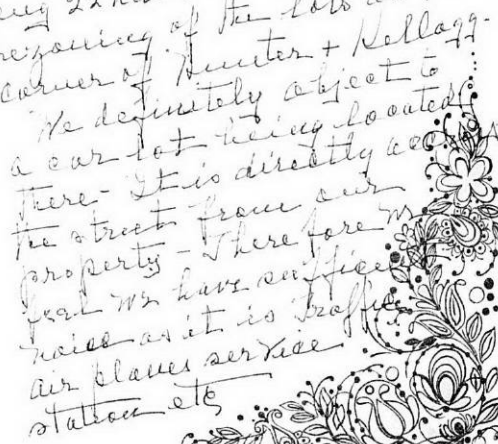 rezoning of the lots
corner of Hunter + Kellogg.
We definitely object to
a car lot being located
there - It is directly
the street from our
property - Therefore we
feel we have
noise as it is Traffic
air planes service
station etc